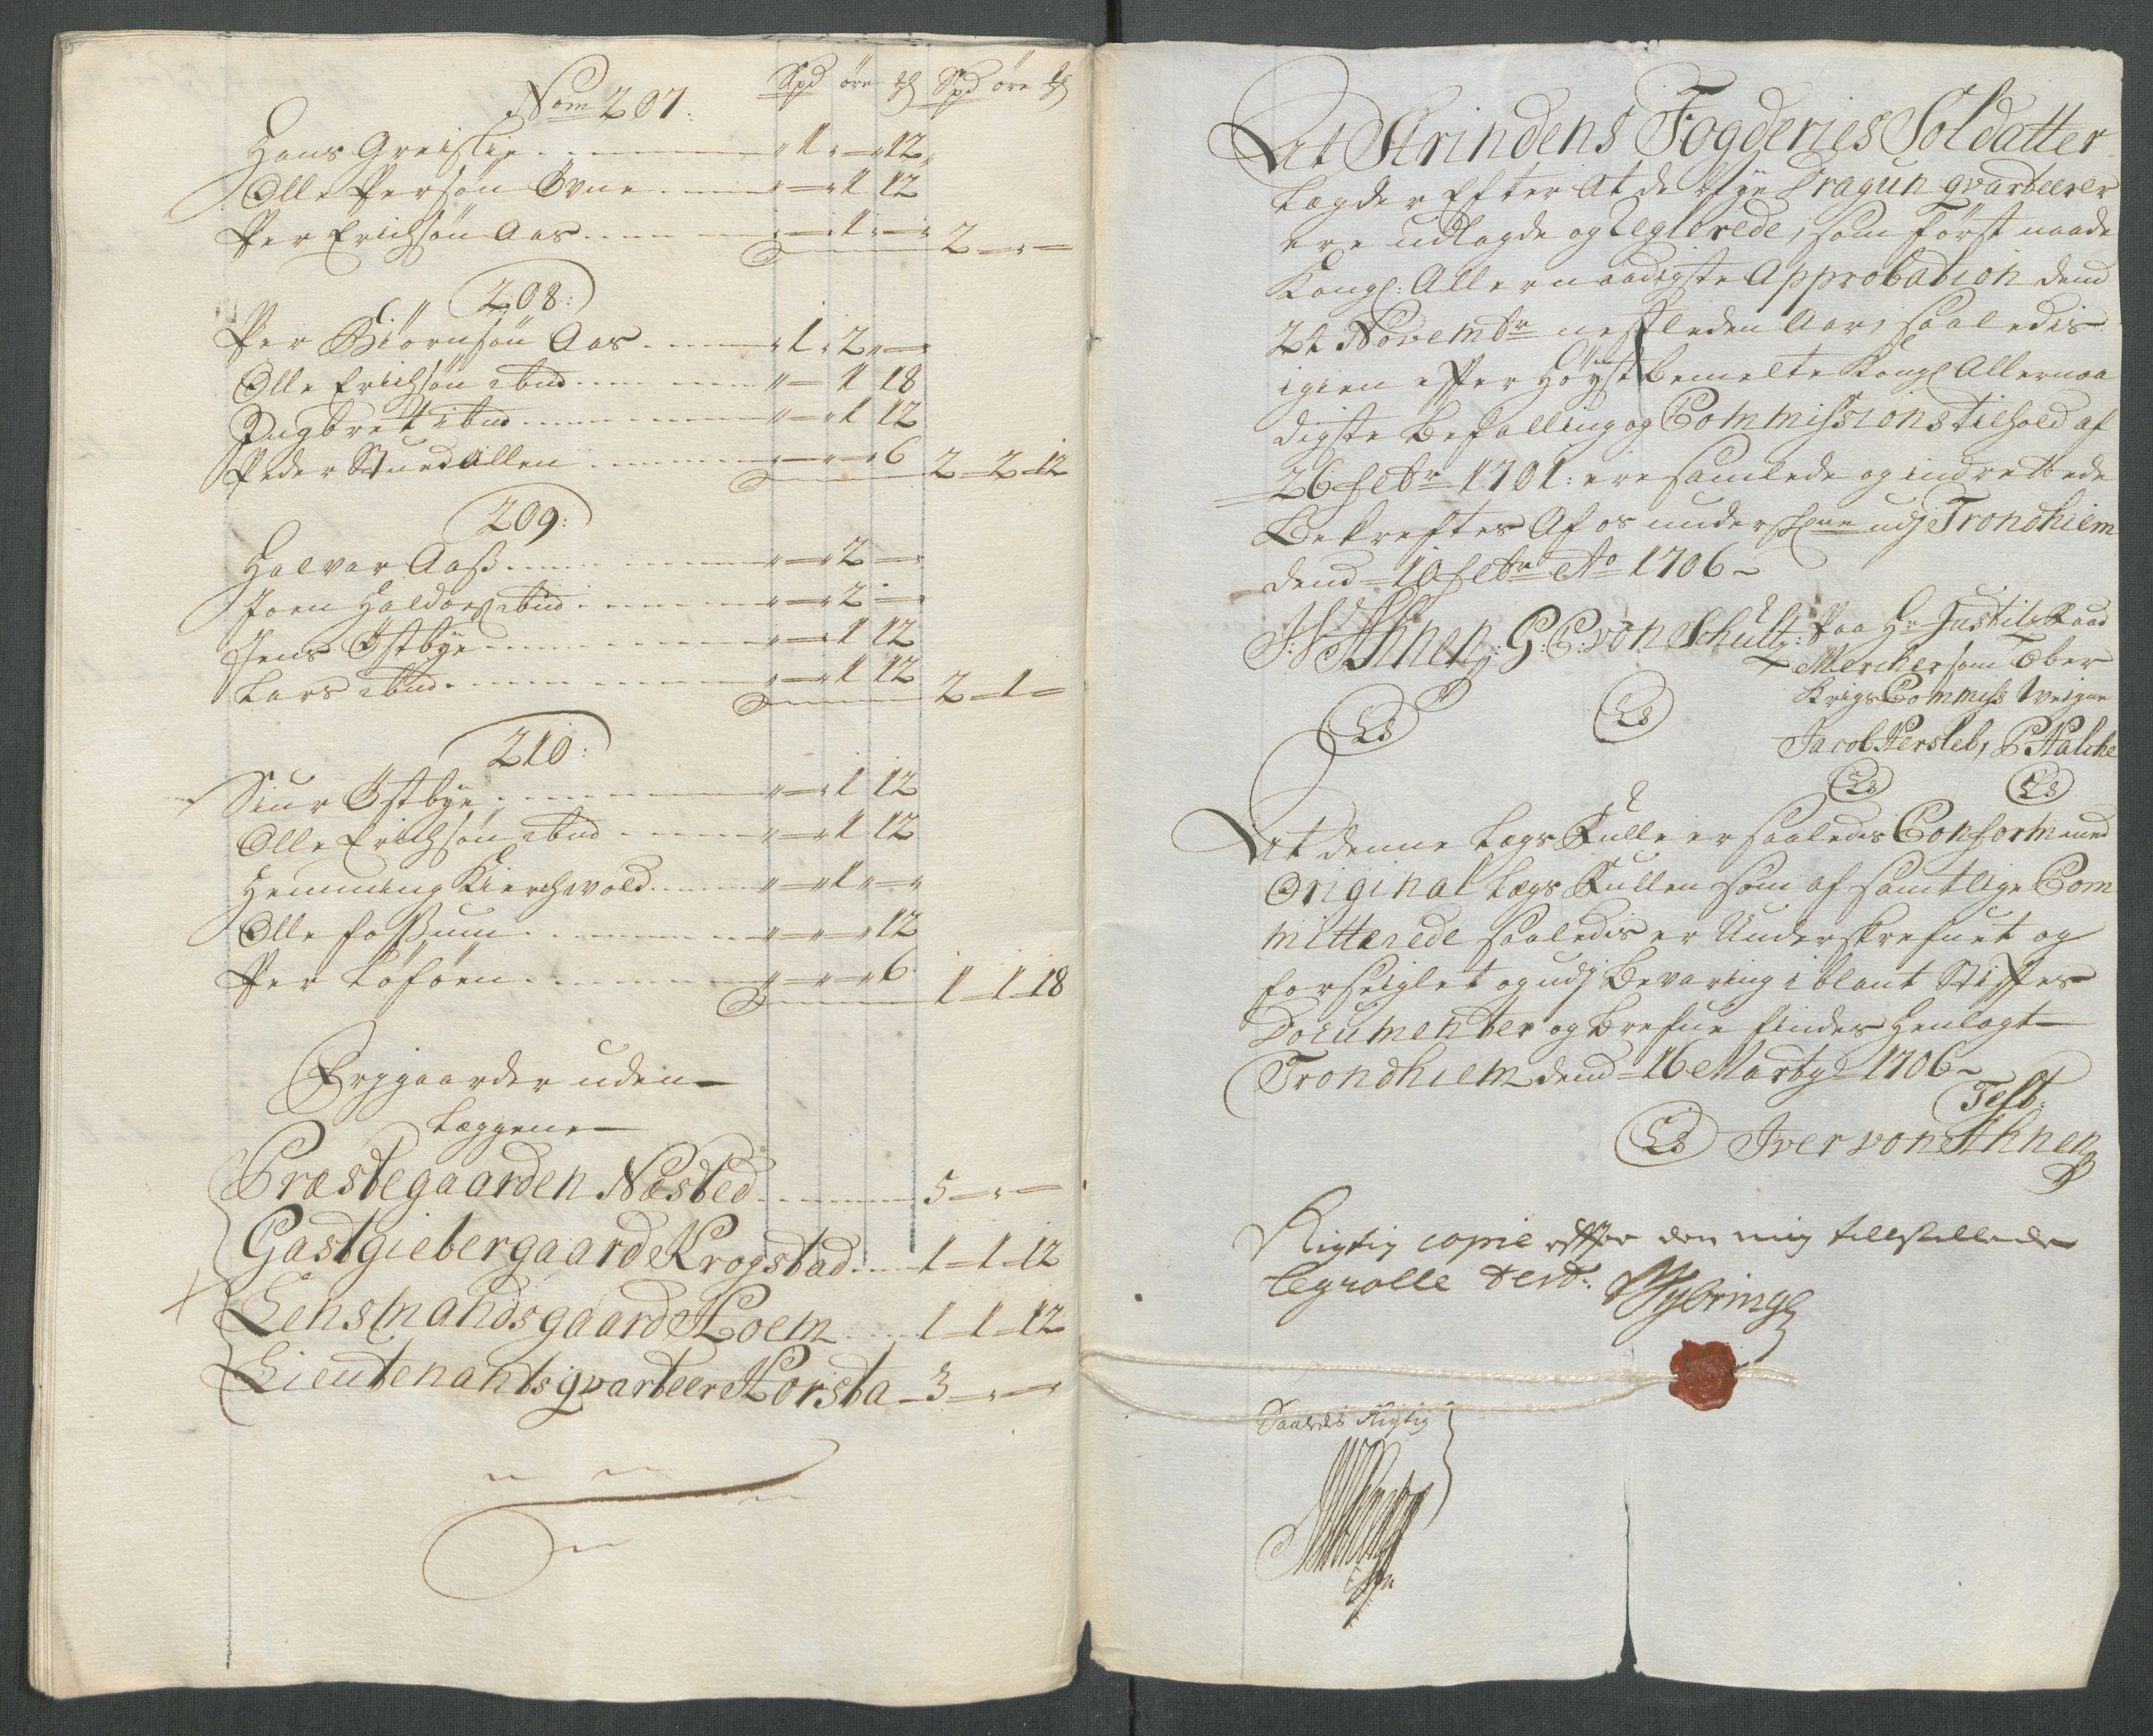 Spd öre ₰ Spd öre ₰
Nom 207:
Hans Greislie " 1 " — " 12 "
Olle Persøn Övne " — " 1 12
Per Erichsøn Aas " — 1 " — "
2 — " —
208:
Per Biörnsøn Aas " 1 " 2 " — "
Olle Erichsøn ibid " — 1 18
Ingbret ibid " — " 1 12
Peder Stuedallen " — " — " 6 2 — 2 — 12
209:
Halvor Aaß " — " 2 — "
Joen Haldors: ibid " — " 2 — "
Jens Östbye " — " 1 12
Lars ibid " — " 1 12
2 — 1 —
210:
Siur Östbye " — " 1 12
Olle Erichsøn ibid " — " 1 12
Henning Kierchvold " — " 1 " — "
Olle Foßum " — " — " 12
Per Löföen " — " — " 6
1 — 1 — 18
Erggaarder uden
Læggene
Præstegaarden Næsted 5 — " —
Gastgiebergaard Krogstad 1 — 1 — 12
Lensmandsgaard Hoem 1 — 1 — 12
Lieutenants qvarteer Horsta — 3 — " —
At Strindens Fogderies Soldatter
Lægder Efter at de Nye Dragun qvarteerer
ere udlagde og Reglerede, som först naade
Kongl: Allernaadigste Approbation dend
24 Novembr nestleden Aar, saaledis
igien effter Höystbemelte Kongl Allernaa
digste Befalling og Commissions tilhold af
26 Febr 1701: ere samlede og indrettede
Bekreftes Af os underschrefne udj Trondhiem
dend 10 Febr Ao 1706
I: V: Ahnen: G: C: von Schultz: Paa Hr Justitz Raad
Mercker som Ober
Krigs Commiss Weigne
Jacob Persleb, P Halche
LS LS
LS LS
At denne Lægs Rulle er saaledes Conform med
Original Lægs Rullen som af samtlige Com
mitterede saaledis er Underskrefuet og
forseiglet og udj Bevaring iblant Stiftes
Documenter og Brefue findes Henlagt
Trondhiem dend 16 Marty 1706
Test:
LS Iver von Ahnen
Rigtig copie effter den mig tillstillede
legrolle test:
Saaledes Rigtig